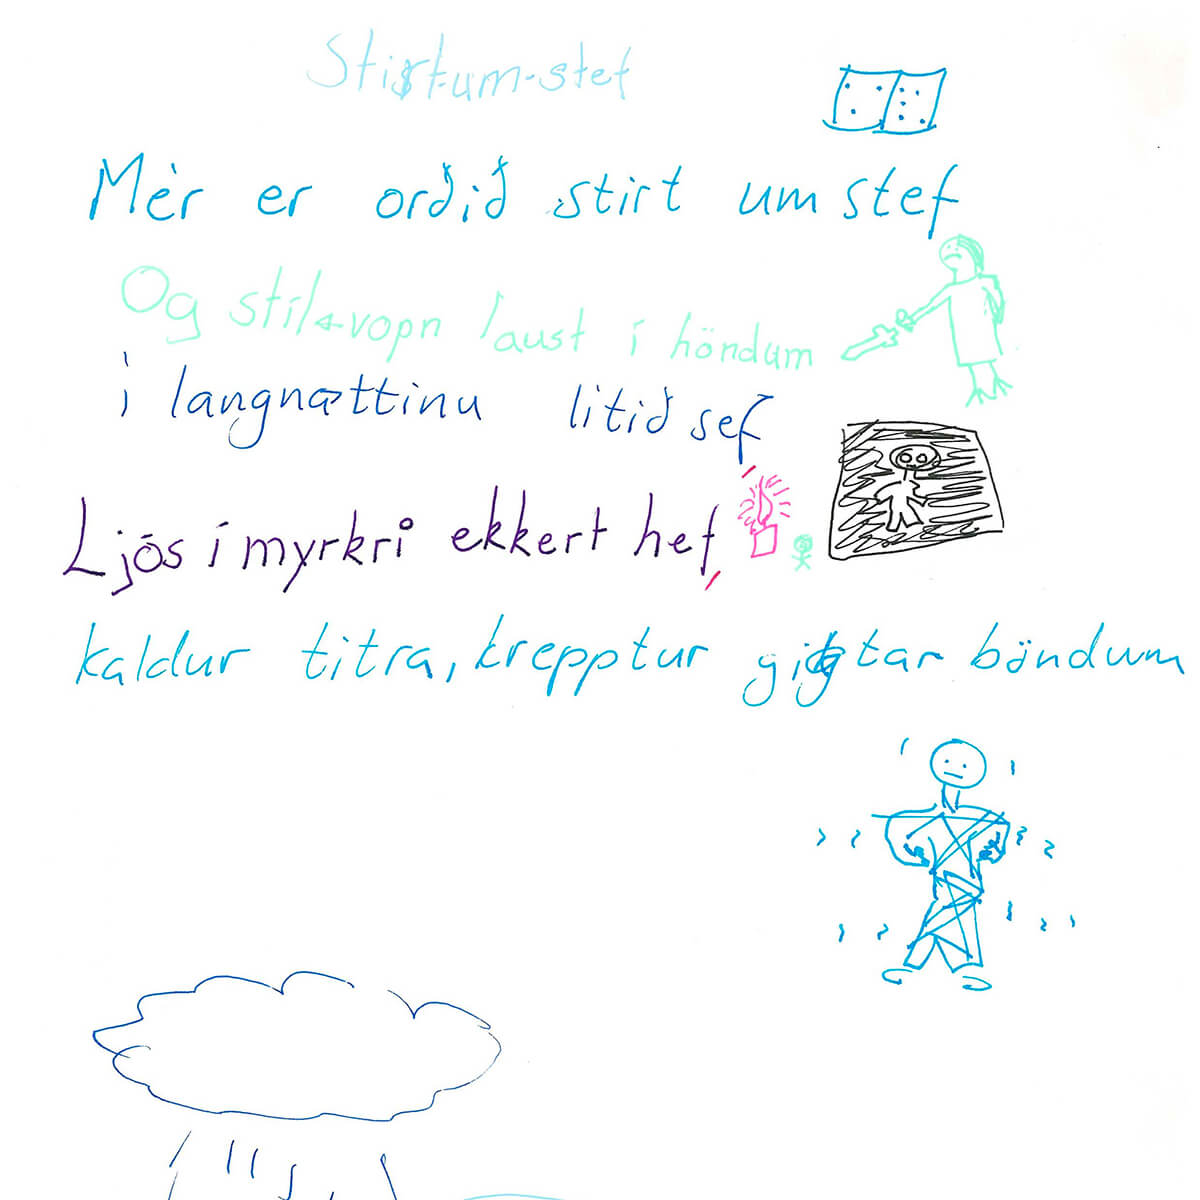 Stirt-um-stef
Mér er orðið stirt um stef
Og stílavopn laust í höndum
í langnættinu litið sef
Ljós í myrkri ekkert hef
kaldur titra, krepptur gigtar böndum